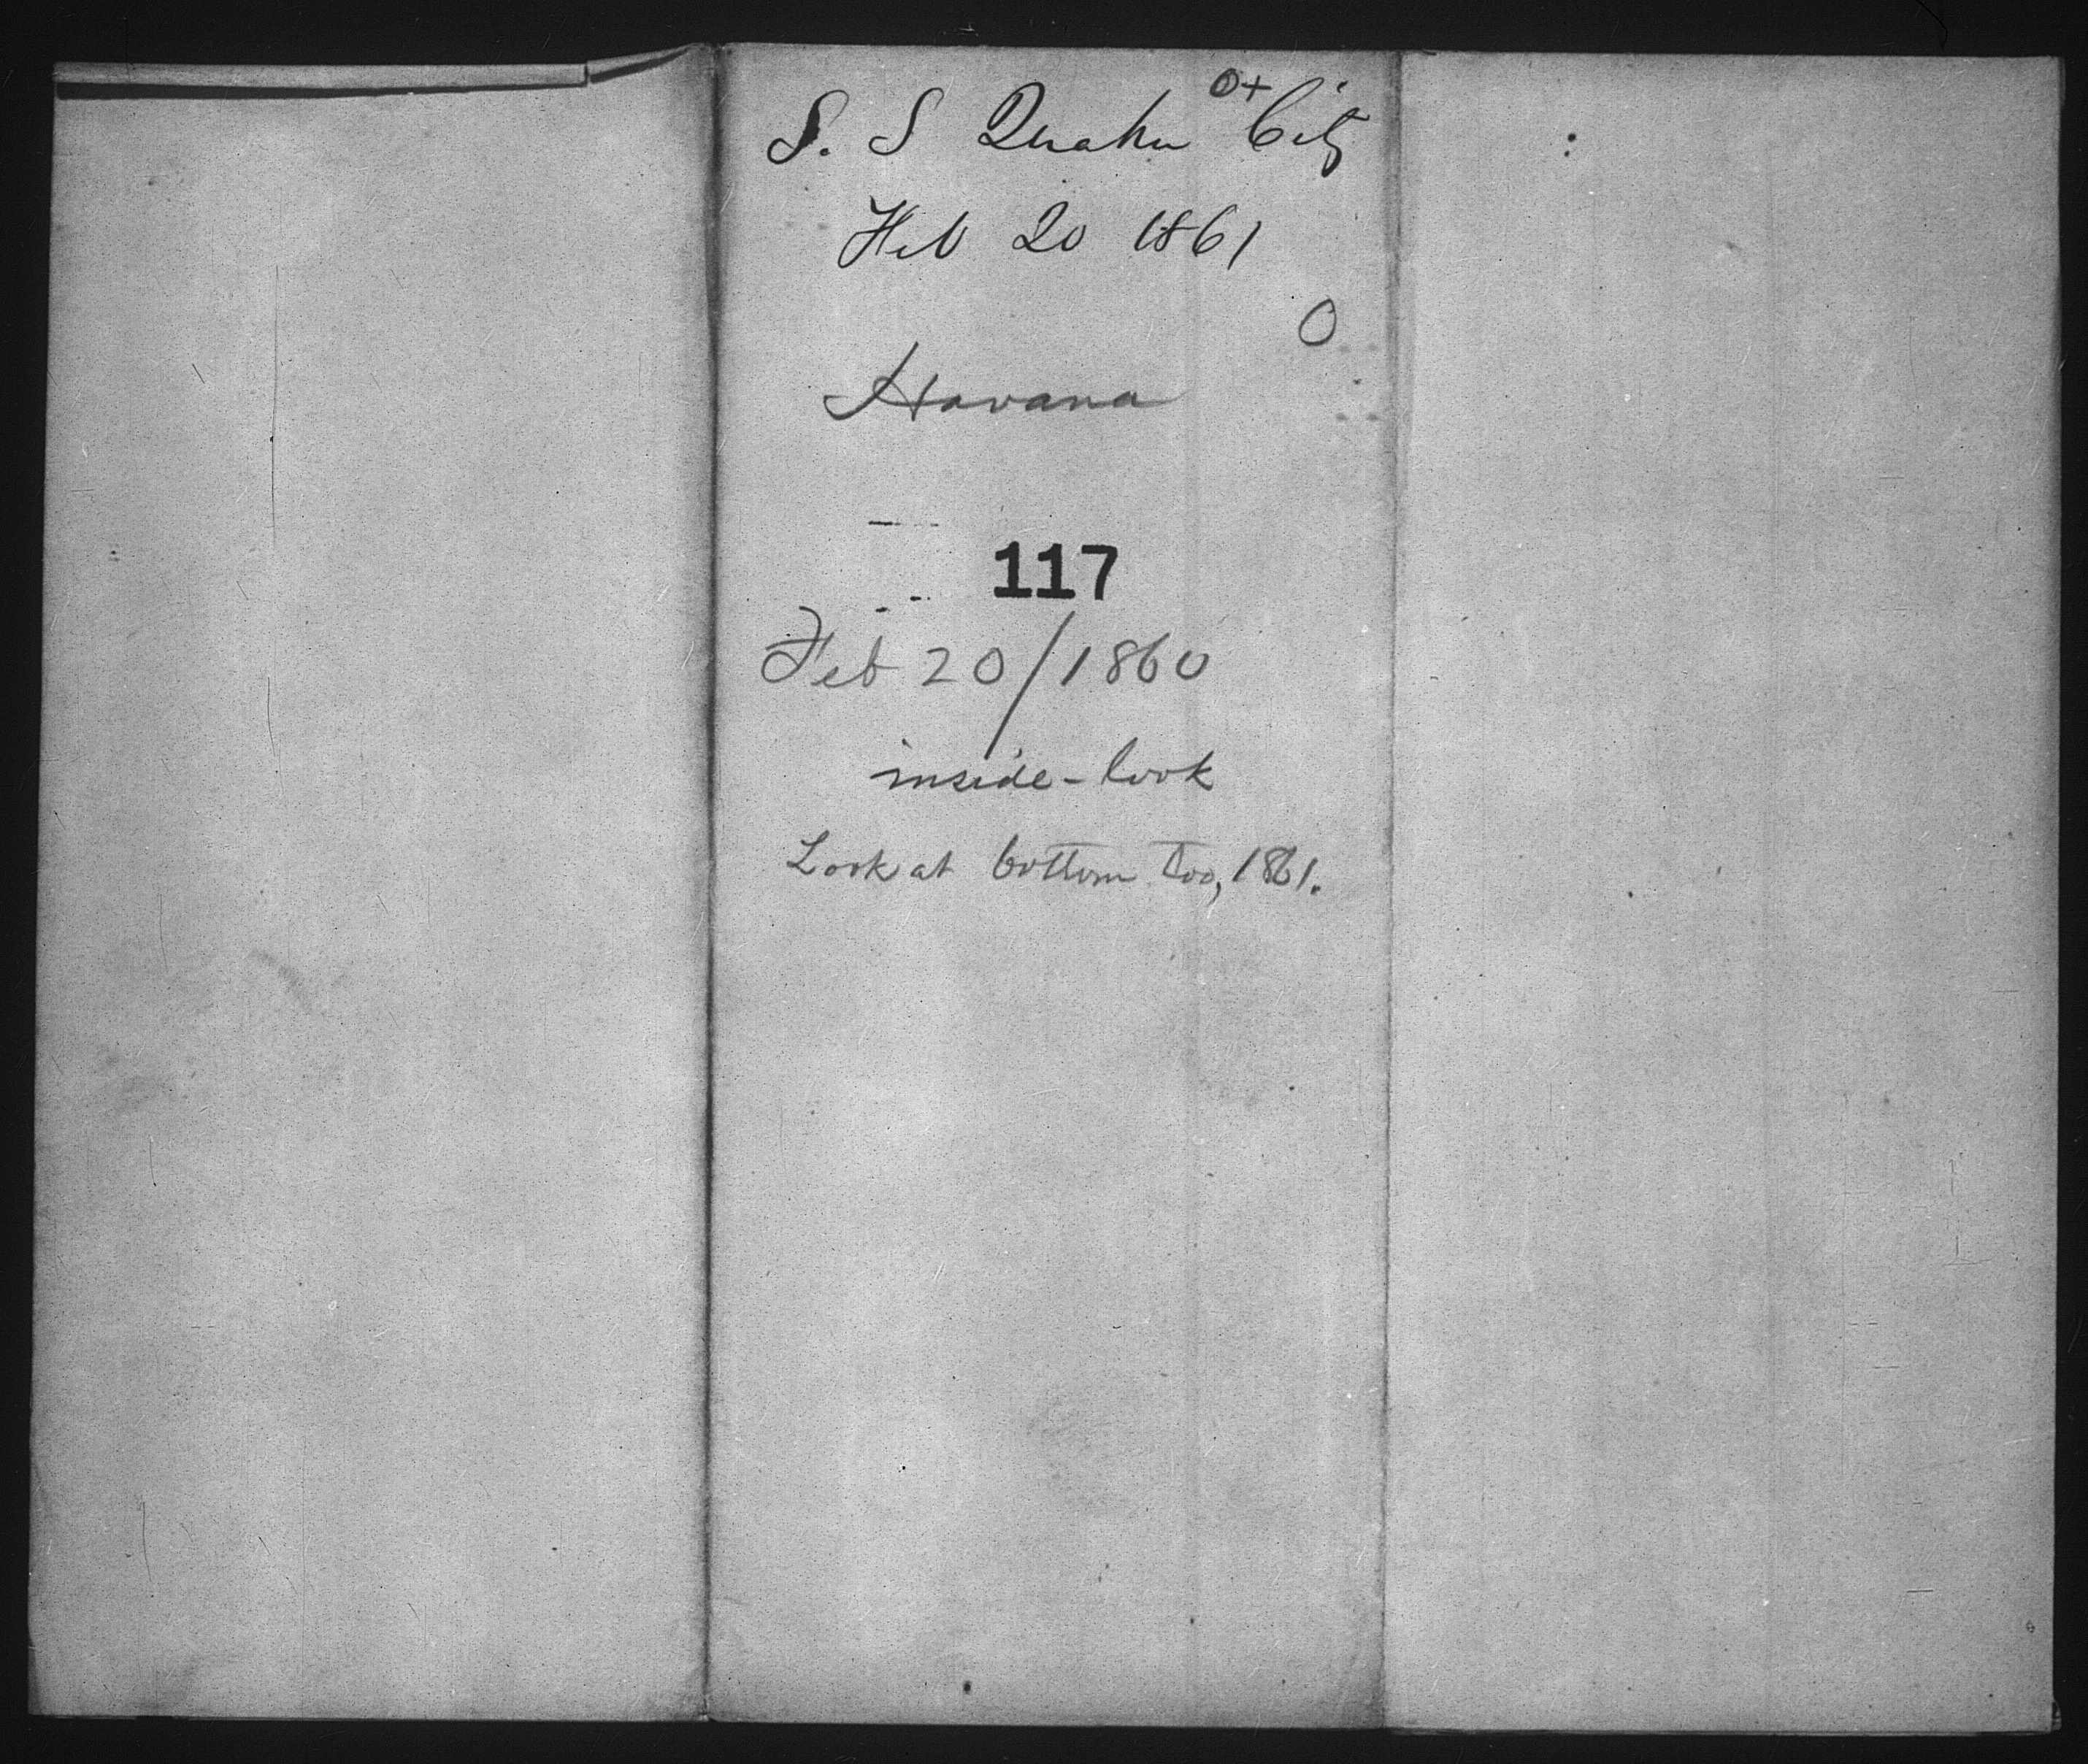 0+
S. S Quaker City
Feb 20 1861
0
Havana
117
Feb 20/1860
inside - look
Look at bottom too, 1861.